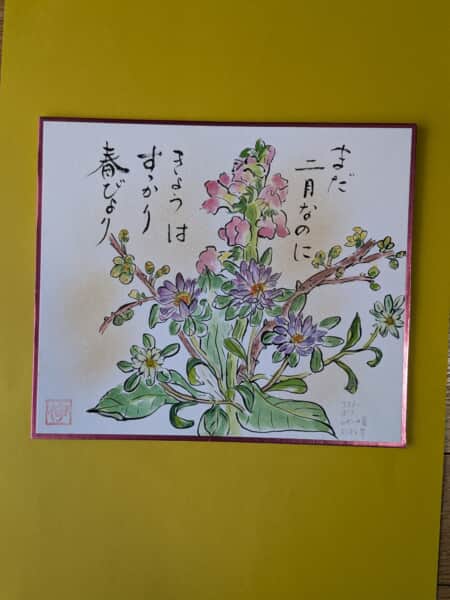 まだ
二月なのに
きょうは
すっかり
春びより